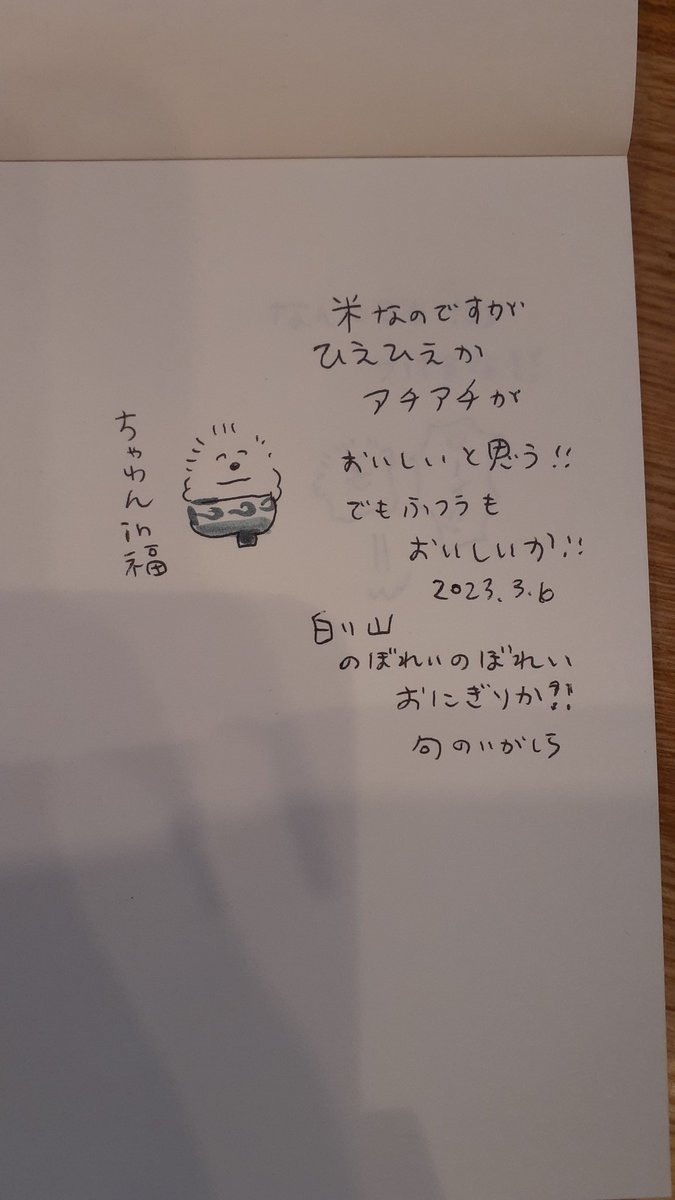 米なのですが
ひえひえか
アチアチが
おいしいと思う!!
でもふつうも
おいしいか!!
2023.3.6
白い山
のぼれいのぼれい
おにぎりか!?!
句のいがしら
ちゃわん in 福